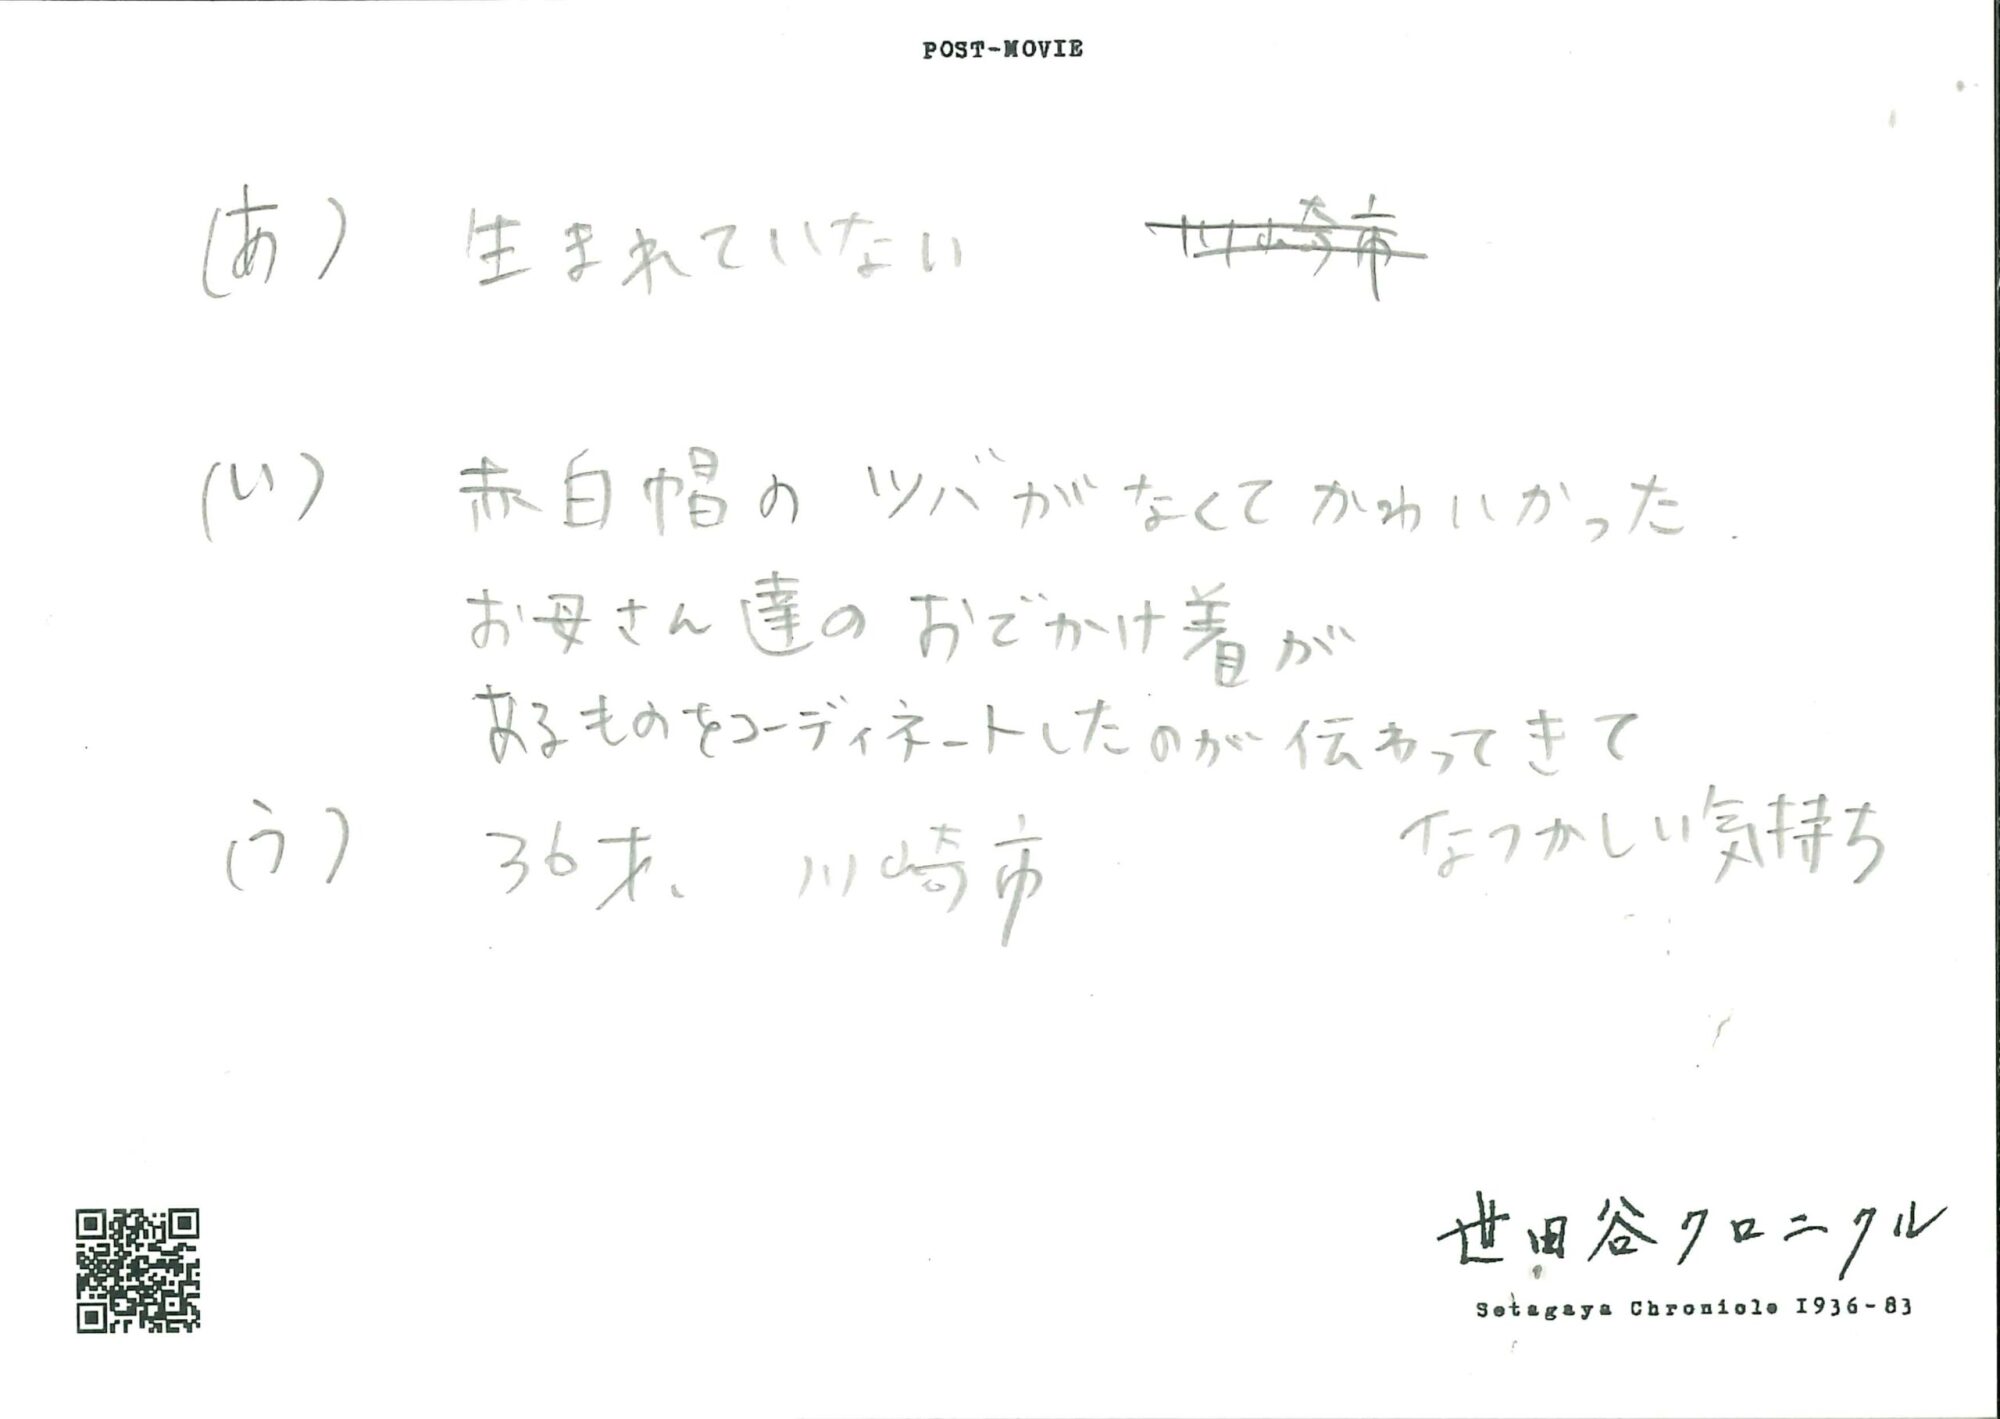 POST-MOVIE
(あ) 生まれていない 川崎市
(い) 赤白帽のツバがなくてかわいかった.
お母さん達のおでかけ着が
あるものをコーディネートしたのが伝わってきて
なつかしい気持ち
(う) 36才、 川崎市
世田谷クロニクル
Setagaya Chronicle 1936-83